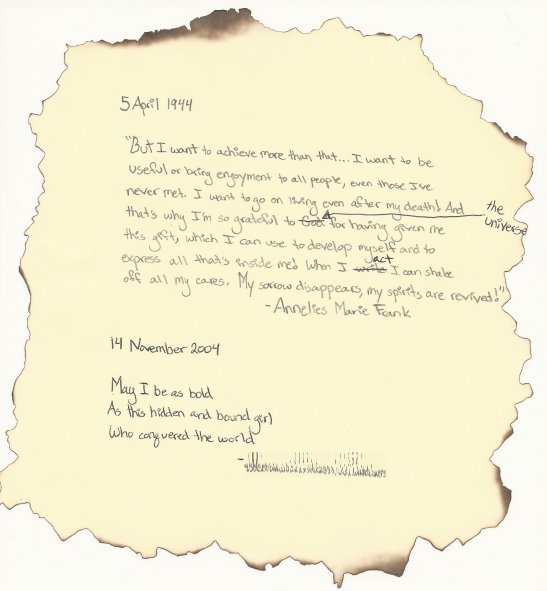 5 April 1944
"But I want to achieve more than that... I want to be
useful or bring enjoyment to all people, even those I've
never met. I want to go on living even after my death! And
that's why I'm so grateful to God the universe for having given me
this gift, which I can use to develop myself and to
express all that's inside me! When I write act I can shake
off all my cares. My sorrow disappears, my spirits are revived!"
-Annelies Marie Frank
14 November 2004
May I be as bold
As this hidden and bound girl
Who conquered the world
-